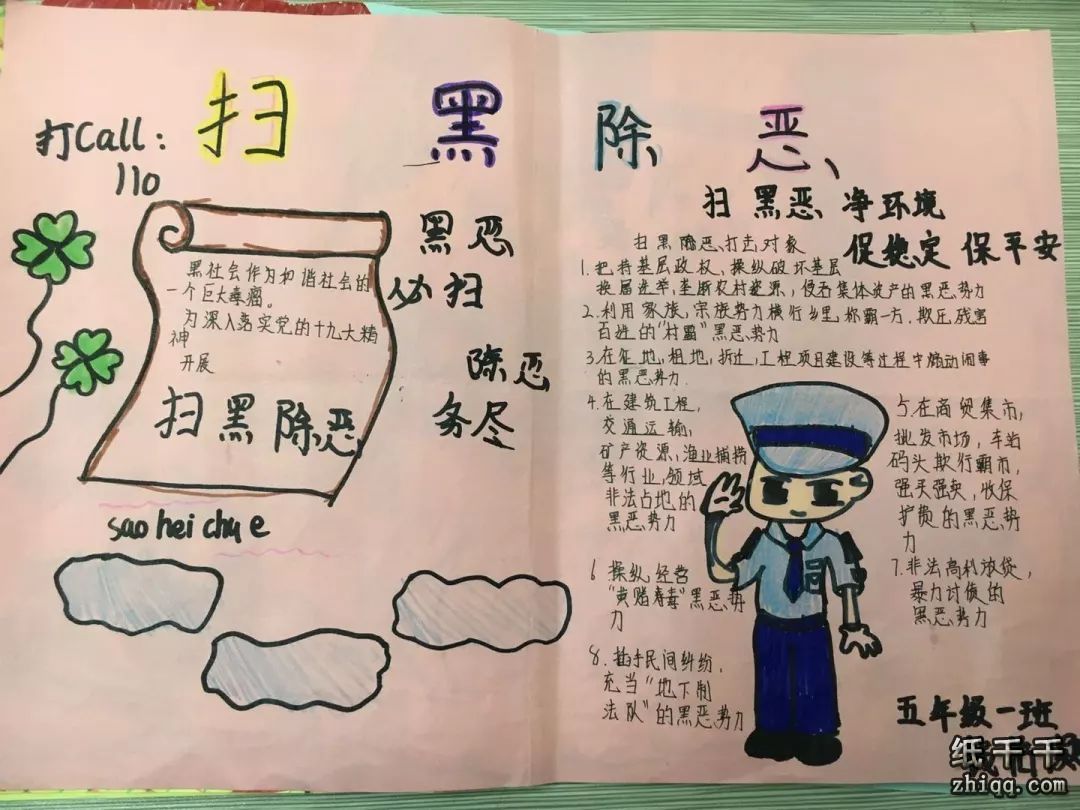 扫 黑 除 恶、
打Call:
110
黑社会作为和谐社会的
一个巨大毒瘤。
为深入落实党的十九大精
神
开展
扫黑除恶
黑恶
必扫
除恶
务尽
sao hei chu e
扫黑恶 净环境
促稳定 保平安
扫黑除恶打击对象
1.把持基层政权、操纵破坏基层
换届选举,垄断农村资源,侵吞集体资产的黑恶势力
2.利用家族,宗族势力横行乡里,称霸一方,欺压残害
百姓的"村霸"黑恶势力
3.在征地,租地,拆迁,工程项目建设等过程中煽动闹事
的黑恶势力.
4.在建筑工程,
交通运输,
矿产资源,渔业捕捞
等行业,领域
非法占地的
黑恶势力
5.在商贸集市,
批发市场,车站
码头欺行霸市,
强买强卖,收保
护费的黑恶势
力
6 操纵经营
"黄赌毒"黑恶势
力
7.非法高利放贷,
暴力讨债的
黑恶势力
8.插手民间纠纷,
充当"地下制
法队"的黑恶势力
五年级一班
纸千千
zhiqq.com